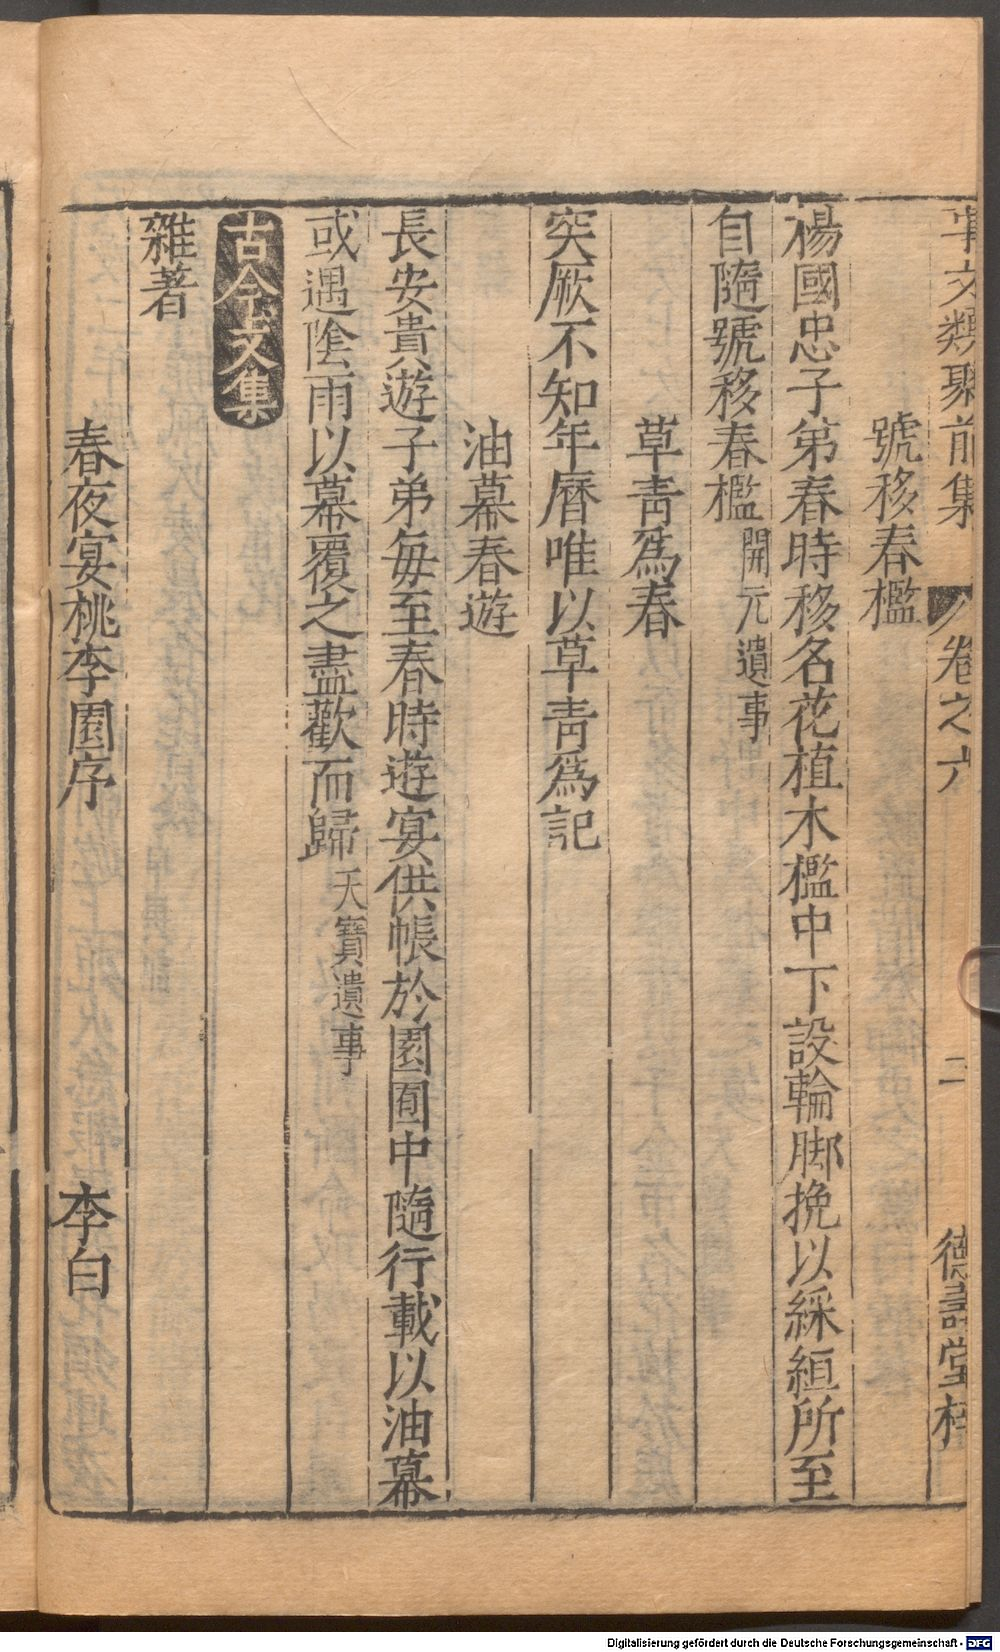 事文類聚前集 卷之六 二 德壽堂梓
號移春檻
楊國忠子第春時移名花植木檻中下設輪脚挽以綵絙所至
自隨號移春檻 開元遺事
草靑爲春
突厥不知年曆唯以草靑爲記
油幕春遊
長安貴遊子弟每至春時遊宴供帳於園囿中隨行載以油幕
或遇陰雨以幕覆之盡歡而歸 天寶遺事
古今文集
雜著
春夜宴桃李園序 李白
Digitalisierung gefördert durch die Deutsche Forschungsgemeinschaft - DFG